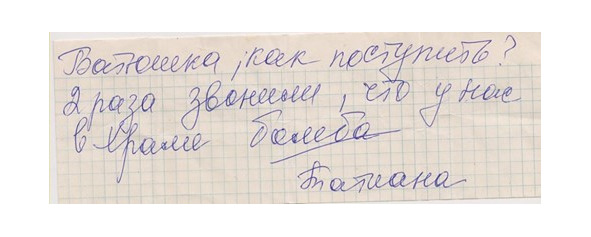 Батюшка, как поступить?
2 раза звонили, что у нас
в храме бомба
Татиана